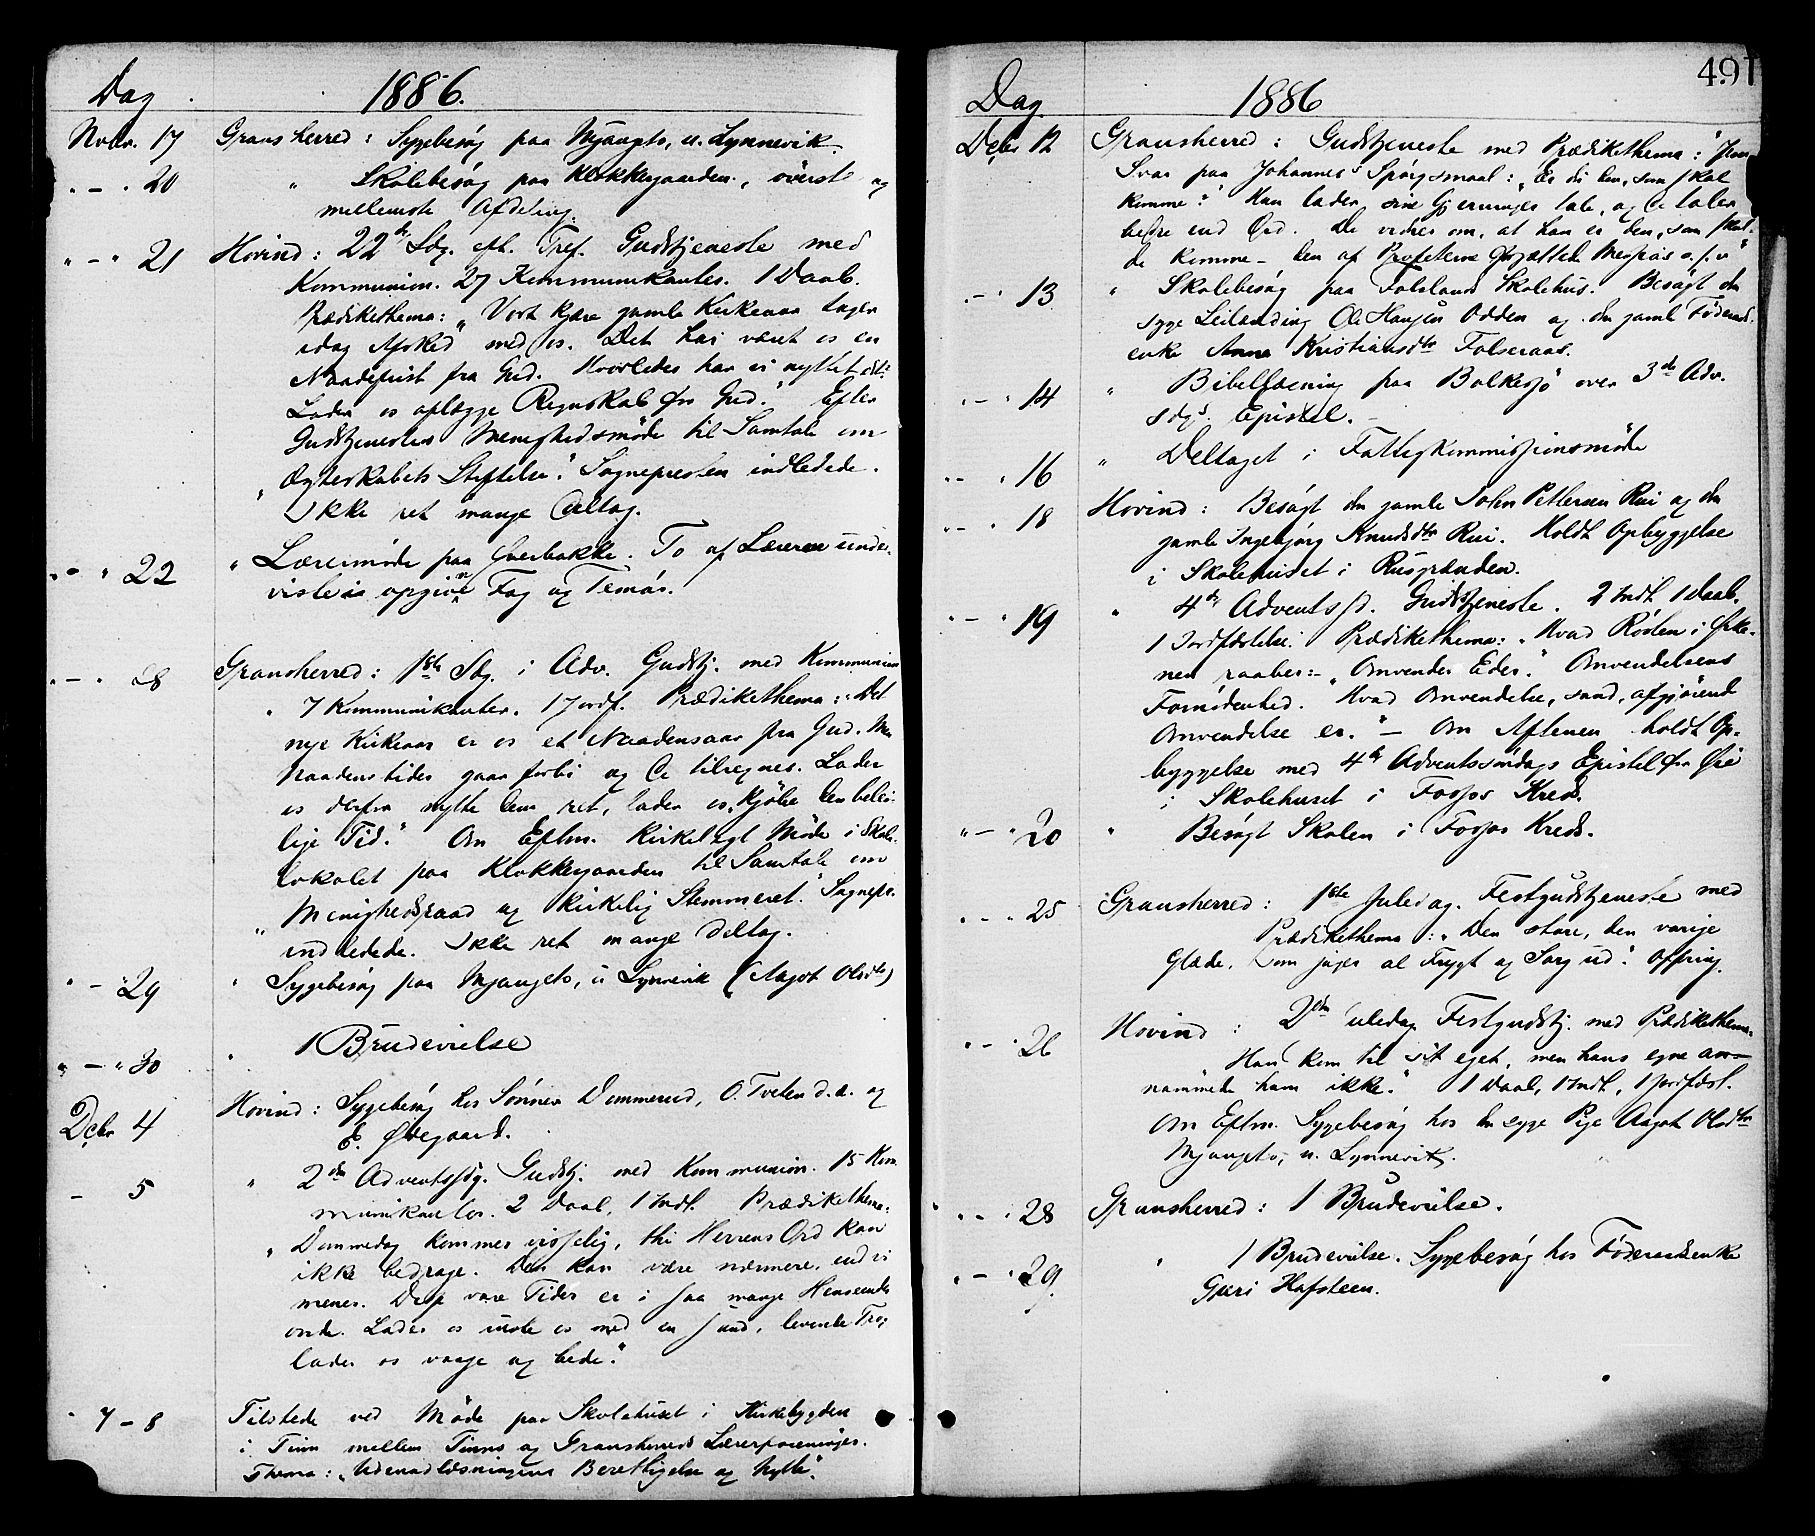 Dag 1886.
Novbr. 17 Gransherred: Sygebesøg paa Mjaugets, u. Lynnevik.
" — " 20 " Skolebesøg paa Klokkergaarden, överste og
mellemste Afdeling.
" — " 21 Hovind: 22de Sdg. eft. Tref. Gudstjeneste med
Kommunion. 27 Kommunikanter. 1 Daab.
Prædikethema: "Vort kjære gamle Kirkeaar tager
idag Afsked med os. Det har været os en
Naadefrist fra Gud. Hvorledes har vi nyttet det?
Lader os aflægge Regnskab for Gud." Efter
Gudstjenesten Menighedsmöde til Samtale om
"Ægteskabets Stiftelse." Sognepresten indledede.
Ikke ret mange deltog.
" — " 22 " Læremöde paa Överbakke. To af Lærerne under-
viste i opgivne Fag og Temás.
" — " 28 Gransherred: 1ste Sdg. i Adv. Gudstj. med Kommunion
7 Kommunikanter. 1 Jordf. Prædikethema: "Det
nye Kirkeaar er os et Naadensaar fra Gud. Men
Naadens tider gaar forbi og de tilregnes. Lader
os derfor nytte dem ret, lader os kjøbe den belei-
lige Tid." Om Eftm. Kirkeligt Möde i Skole-
lokalet paa Klokkergaarden til Samtale om
"Menighedsraad og kirkelig Stemmeret." Sognepr.
indledede. Ikke ret mange deltog.
" — " 29 " Sygebesøg paa Mjaugets, u Lynnevik (Aagot Olsdtr)
" — " 30 " 1 Brudevielse
Dcbr 4 Hovind: Sygebesøg hos Sönnev Dommerud, O. Tveten d.æ. og
E. Ødegaard.
— 5 " 2den Adventssdg. Gudstj. med Kommunion. 15 Kom-
munikanter. 2 Daab, 1 Indl. Prædikethema:
"Dommedag kommer visselig, thi Herrens Ord kan
ikke bedrage. Den kan være nærmere, end vi
menes. Disse vore Tider er i saa mange Henseender
onde. Lader os ruste os med en sund, levende Tro;
lader os vaage og bede."
" 7 — 8 Tilstede ved Möde paa Skolehuset i Kirkebygden
i Tinn mellem Tinns og Gransherreds Lærerforeninger.
Thema: "Udenadlæsningens Berettigelse og Nytte".
Dag 1886 491
Dcbr 12 Gransherred: Gudstjeneste med Prædikethema: "Jesu
Svar paa Johannes's Spörgsmaal: "Er du den, som skal
komme?" Han lader sine Gjerninger tale, og de taler
bedre end Ord. De vidner om, at han er den, som skul-
de komme — den af Profeterne forjættede Messias o.s.v."
" — " 13 " Skolebesøg paa Folelands Skolehus. Besøgt den
syge Leilænding Ole Hansen Odden og den gamle Föderaads-
enke Anna Kristiansdtr Folseraas.
" — " 14 " Bibellæsning paa Bolkesjö over 3die Adv.
sdgs. Epistel. —
" — " 16 " Deltaget i Fattigkommissionsmöde
" — " 18 Hovind: Besøgt den gamle John Pettersen Rui og den
gamle Ingebjörg Knudsdtr Rui. Holdt Opbyggelse
i Skolehuset i Rusgrænden.
" — " 19 " 4de Adventssd. Gudstjeneste. 2 Indl. 1 Daab.
1 Jordfæstelse. Prædikethema: "Hvad Rösten i Ørke-
nen raaber: — "Omvender Eder." Omvendelsens
Fornödenhed. Hvad Omvendelse, sand, afgjörende
Omvendelse er." — Om Aftenen holdt Op-
byggelse med 4de Adventssöndags Epistel for Øie
i Skolehuset i Fosjos Kreds.
" — " 20 " Besøgt Skolen i Fosjos Kreds.
" — " 25 Gransherred: 1ste Juledag. Festgudstjeneste med
Prædikethema: "Den store, den varige
Glæde, som jager al Frygt og Sorg ud." Offring.
" — " 26 Hovind: 2den Juledag Festgudstj. med Prædikethema:
Han kom til sit eget, men hans egne an-
nammede ham ikke." 1 Daab, 1 Indl., 1 Jordfæst.
Om Eftm. Sygebesøg hos den syge Pige Aagot Olsdtr
Mjaugets, u. Lynnevik.
" — " 28 Gransherred: 1 Brudevielse.
" — " 29 " 1 Brudevielse. Sygebesøg hos Föderaadsenke
Guri Hafsteen.